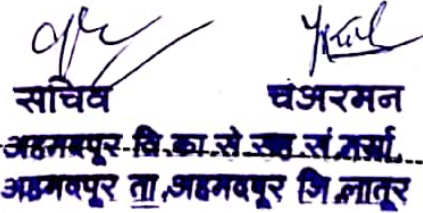 सचिव चेअरमन
अहमदपूर वि.का से सह सं.मर्सा.
अहमदपूर ता.अहमदपूर जि.लातूर